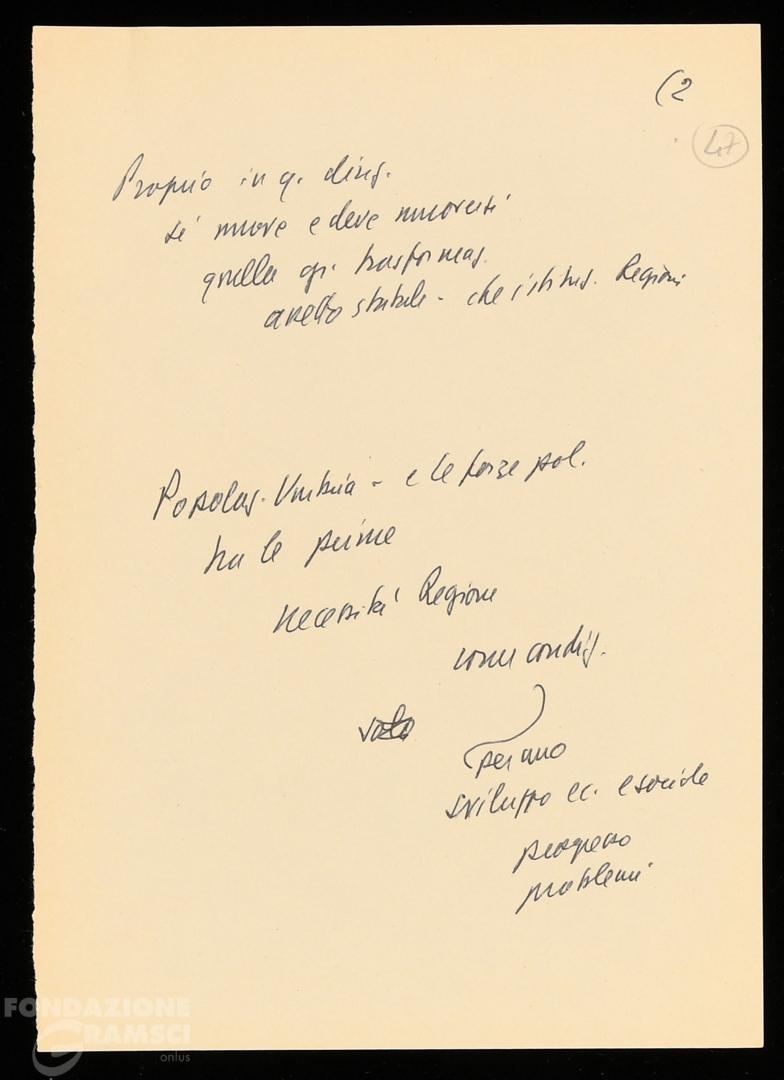 (2
47
Proprio in q. direz.
si muove e deve muoversi
quella gr. trasformaz.
assetto statale - che è istituz. Regioni
Popolaz. Umbria - e le forze pol.
tra le prime
necessità Regione
come condiz.
per uno
sviluppo ec. e sociale
progresso
problemi
FONDAZIONE
GRAMSCI
onlus